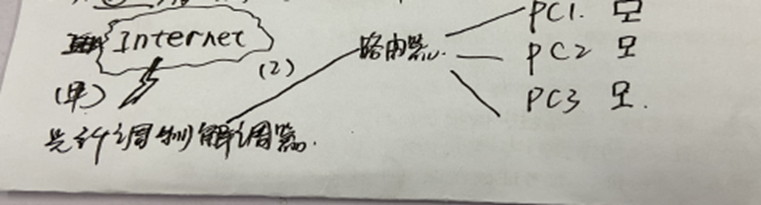 Internet
(2)
路由器.
PC1.
PC2
PC3
(单)
光纤调制解调器.